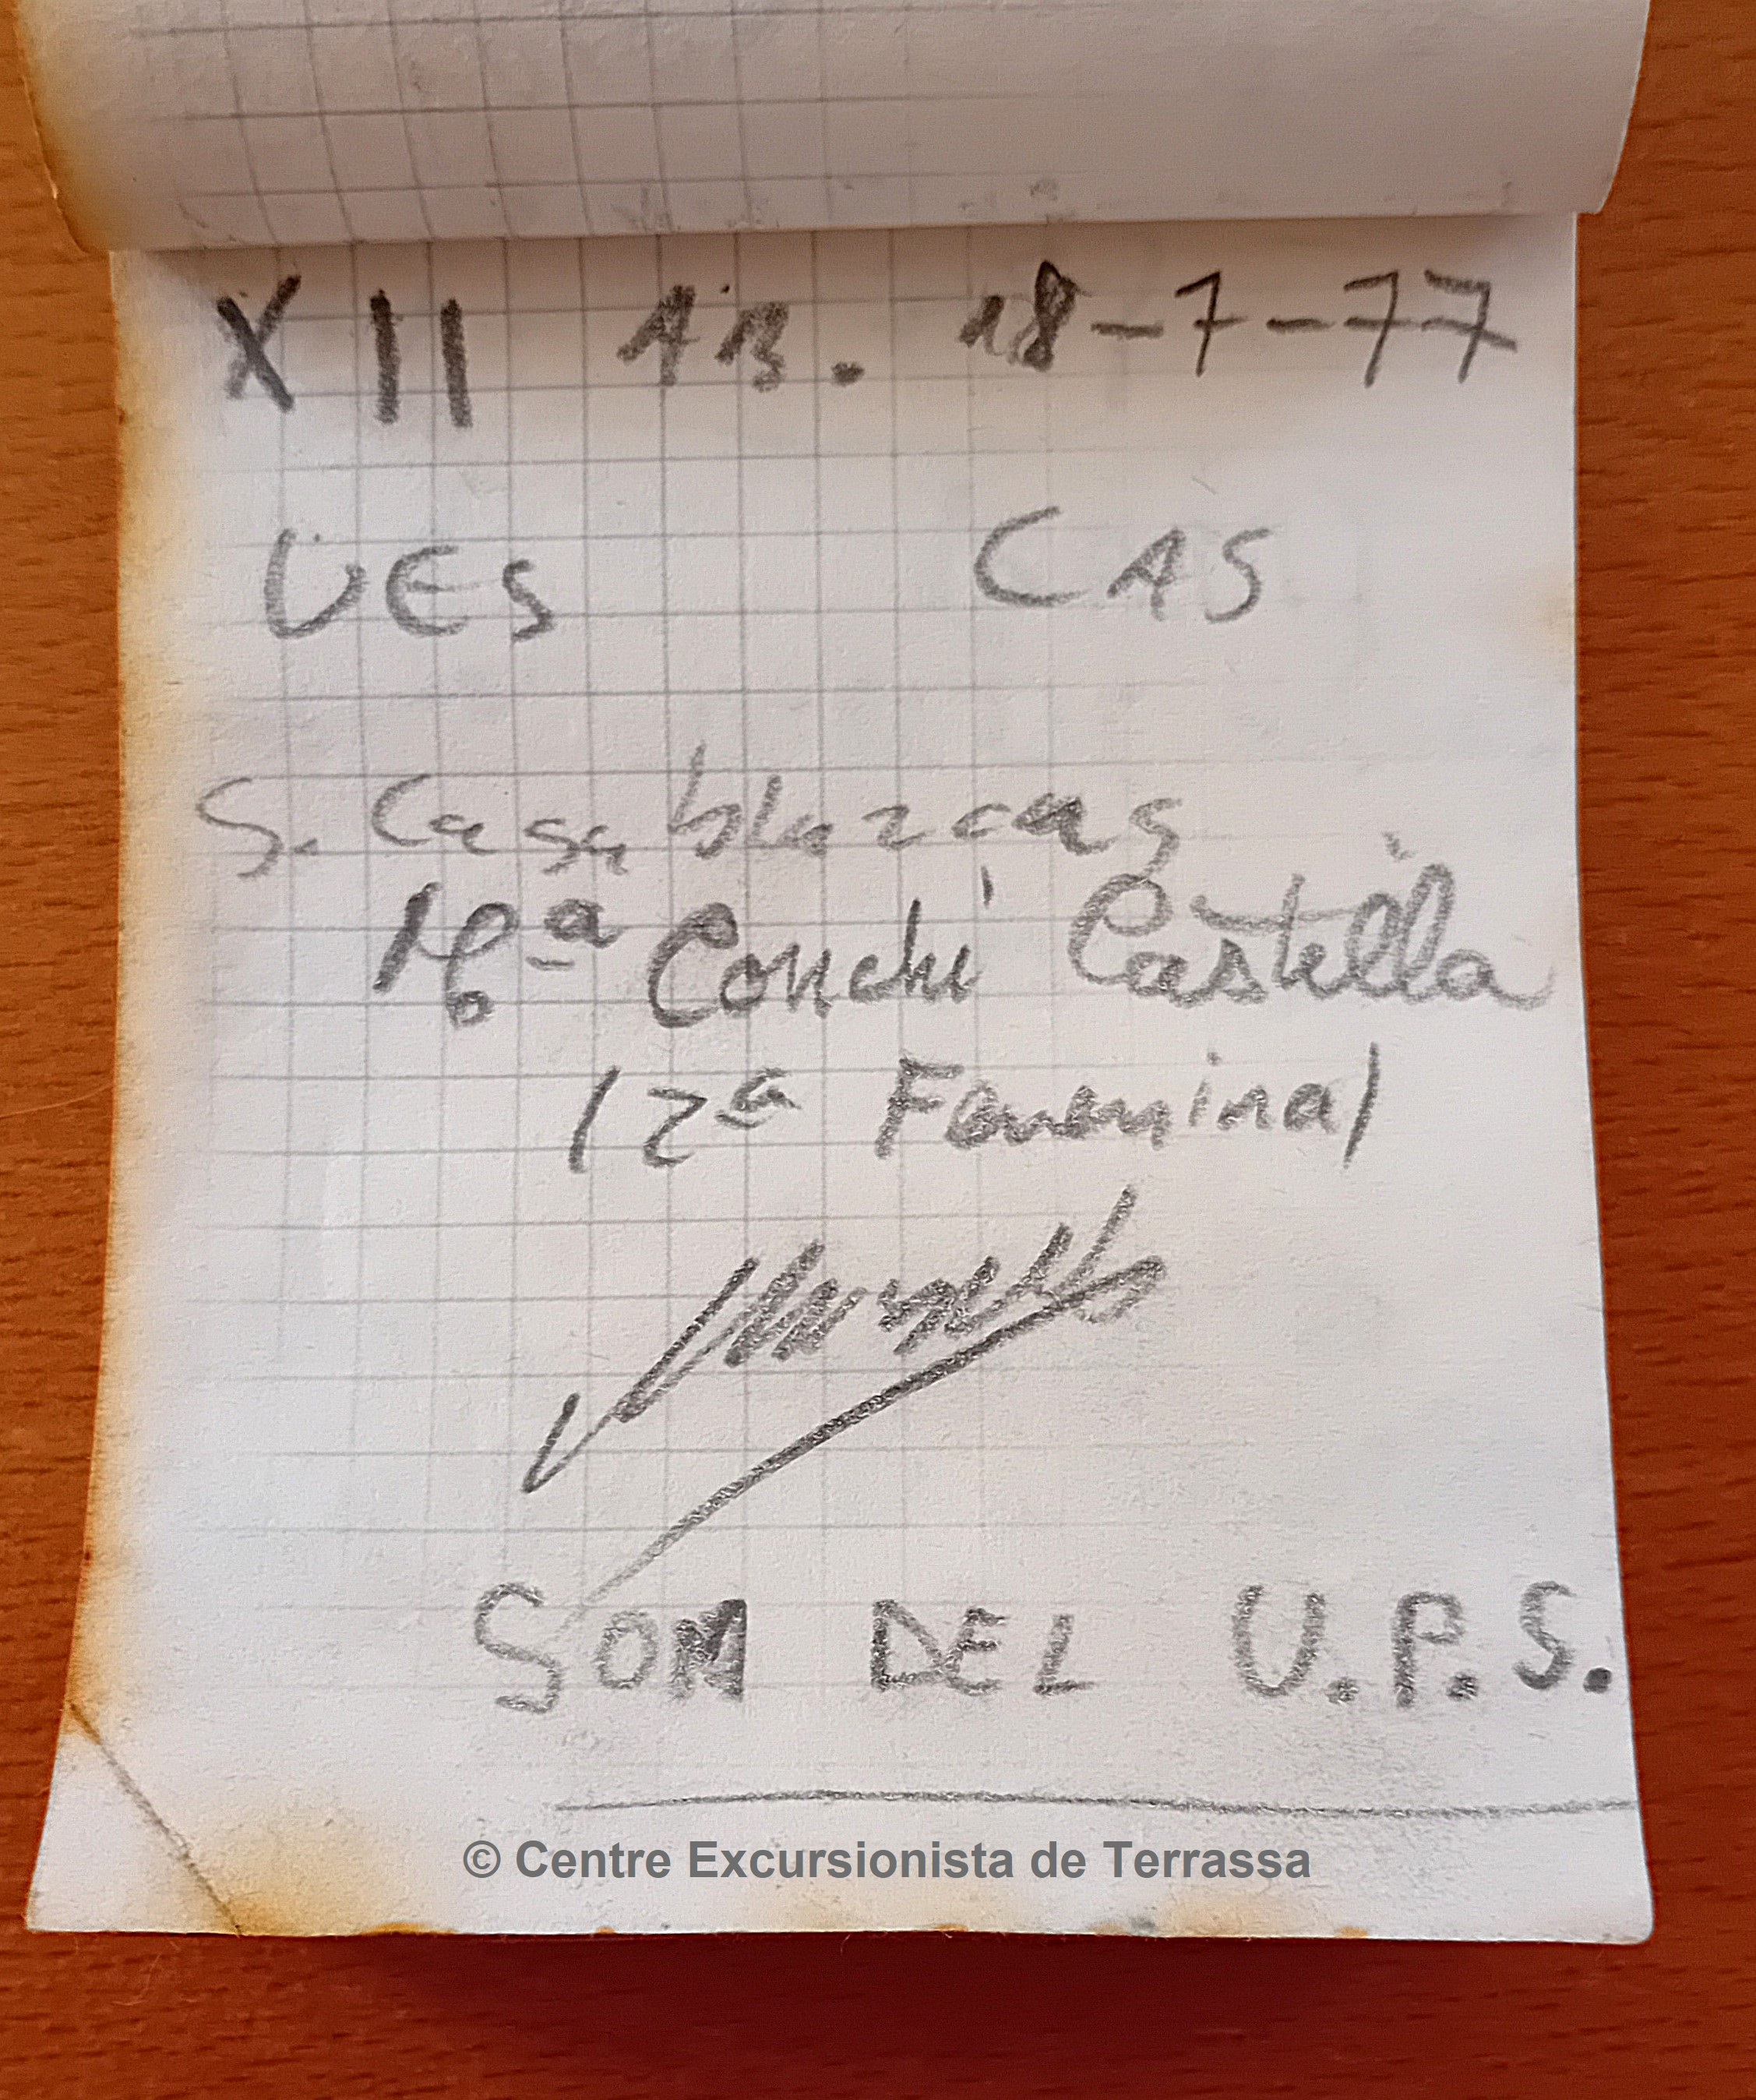 XII AB. 18-7-77
UES CAS
S. Casablancas
Mª Conchi Castellà
12ª Femeninal
SOM DEL U.P.S.
© Centre Excursionista de Terrassa